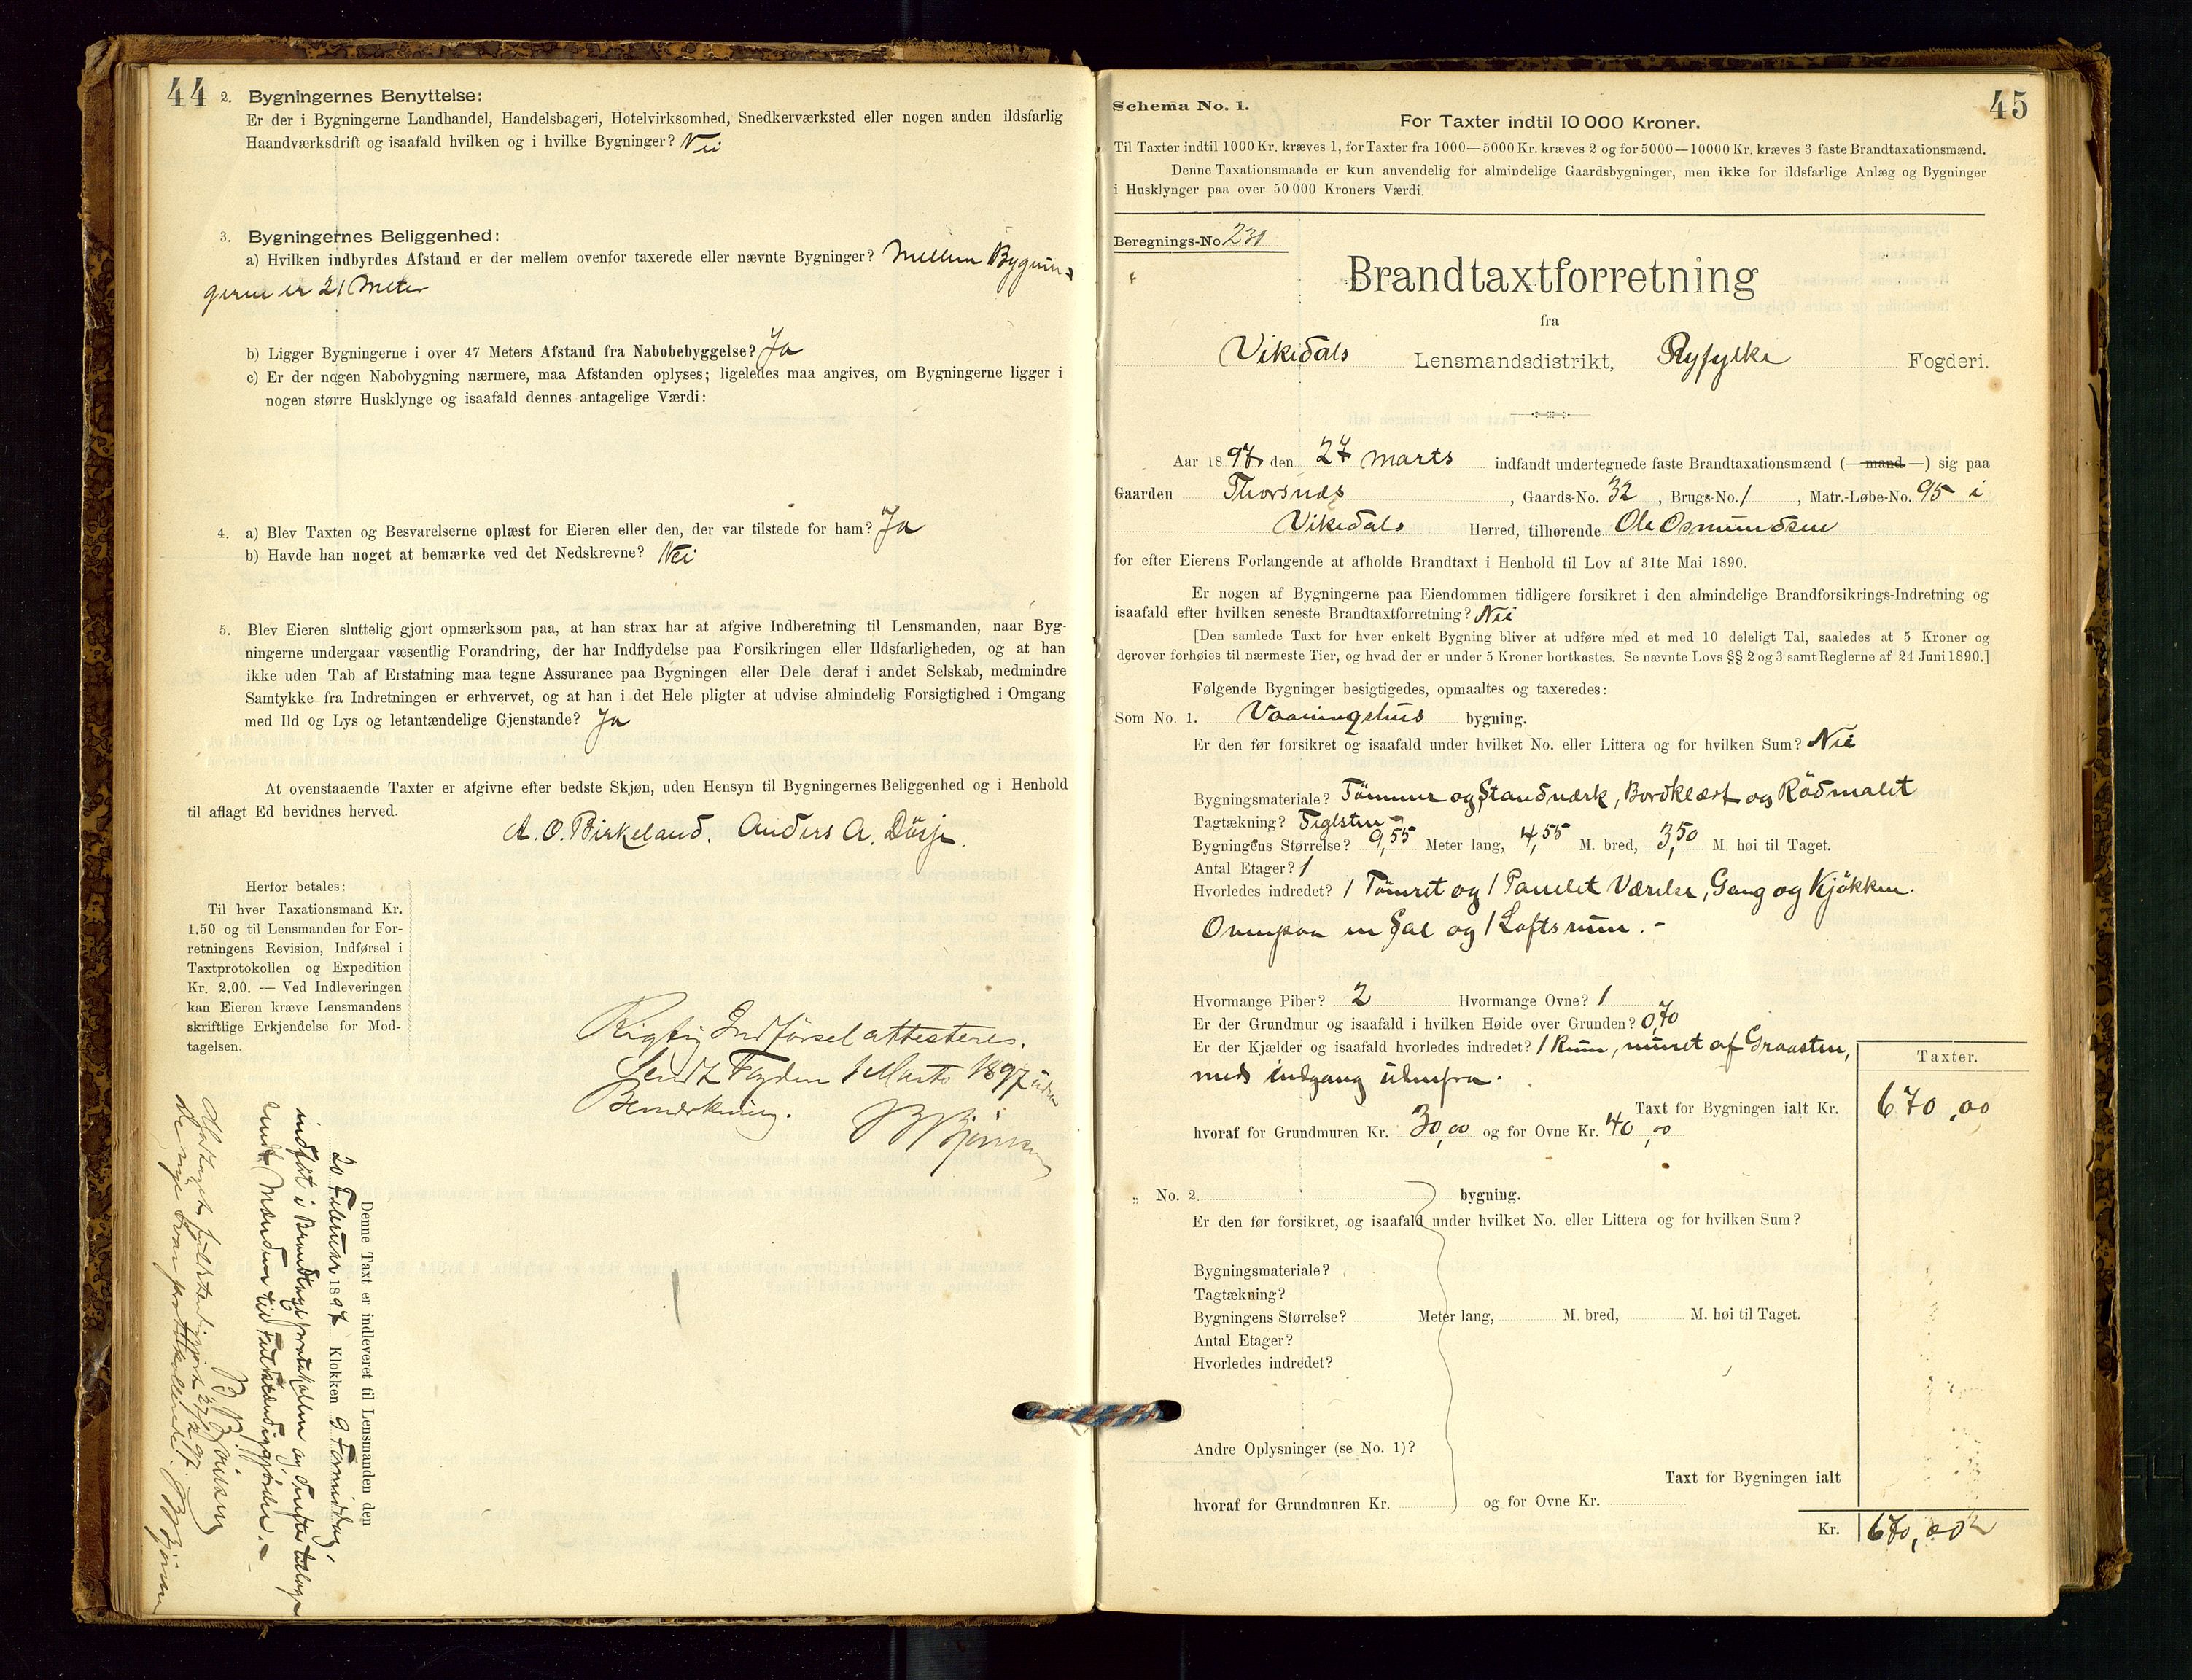 44
2. Bygningernes Benyttelse:
Er der i Bygningerne Landhandel, Handelsbageri, Hotelvirksomhed, Snedkerværksted eller nogen anden ildsfarlig
Haandværksdrift og isaafald hvilken og i hvilke Bygninger? Nei
3. Bygningernes Beliggenhed:
a) Hvilken indbyrdes Afstand er der mellem ovenfor taxerede eller nævnte Bygninger? Mellem Bygnin-
gerne er 21 Meter
b) Ligger Bygningerne i over 47 Meters Afstand fra Nabobebyggelse? Ja
c) Er der nogen Nabobygning nærmere, maa Afstanden oplyses; ligeledes maa angives, om Bygningerne ligger i
nogen større Husklynge og isaafald dennes antagelige Værdi:
4. a) Blev Taxten og Besvarelserne oplæst for Eieren eller den, der var tilstede for ham? Ja
b) Havde han noget at bemærke ved det Nedskrevne? Nei
5. Blev Eieren sluttelig gjort opmærksom paa, at han strax har at afgive Indberetning til Lensmanden, naar Byg-
ningerne undergaar væsentlig Forandring, der har Indflydelse paa Forsikringen eller Ildsfarligheden, og at han
ikke uden Tab af Erstatning maa tegne Assurance paa Bygningen eller Dele deraf i andet Selskab, medmindre
Samtykke fra Indretningen er erhvervet, og at han i det Hele pligter at udvise almindelig Forsigtighed i Omgang
med Ild og Lys og letantændelige Gjenstande? Ja
At ovenstaaende Taxter er afgivne efter bedste Skjøn, uden Hensyn til Bygningernes Beliggenhed og i Henhold
til aflagt Ed bevidnes herved.
A. O. Birkeland. Anders A. Dörje.
Herfor betales:
Til hver Taxationsmand Kr.
1.50 og til Lensmanden for For-
retningens Revision, Indførsel i
Taxtprotokollen og Expedition
Kr. 2.00. — Ved Indleveringen
kan Eieren kræve Lensmandens
skriftlige Erkjendelse for Mod-
tagelsen.
Rigtig Indførsel attesteres.
Sendt Fogden 1 Marts 1897 uden
Bemærkning.
Denne Taxt er indleveret til Lensmanden den
20 Februar 1897 Klokken 9 Formiddag,
indført i Brandtaxtprotokollen og derefter
sendt Mændene til
45
Schema No. 1.
For Taxter indtil 10 000 Kroner.
Til Taxter indtil 1000 Kr. kræves 1, for Taxter fra 1000—5000 Kr. kræves 2 og for 5000—10000 Kr. kræves 3 faste Brandtaxationsmænd.
Denne Taxationsmaade er kun anvendelig for almindelige Gaardsbygninger, men ikke for ildsfarlige Anlæg og Bygninger
i Husklynger paa over 50 000 Kroners Værdi.
Beregnings-No 231
Brandtaxtforretning
fra
Vikedals Lensmandsdistrikt, Ryfylke Fogderi.
Aar 1897 den 27 Marts indfandt undertegnede faste Brandtaxationsmænd (—mand—) sig paa
Gaarden Thorsnæs, Gaards-No. 32, Brugs-No. 1, Matr.-Løbe-No. 95 i
Vikedals Herred, tilhørende Ole Osmundsen
for efter Eierens Forlangende at afholde Brandtaxt i Henhold til Lov af 31te Mai 1890.
Er nogen af Bygningerne paa Eiendommen tidligere forsikret i den almindelige Brandforsikrings-Indretning og
isaafald efter hvilken seneste Brandtaxtforretning? Nei
[Den samlede Taxt for hver enkelt Bygning bliver at udføre med et med 10 deleligt Tal, saaledes at 5 Kroner og
derover forhøies til nærmeste Tier, og hvad der er under 5 Kroner bortkastes. Se nævnte Lovs §§ 2 og 3 samt Reglerne af 24 Juni 1890.]
Følgende Bygninger besigtigedes, opmaaltes og taxeredes:
Som No. 1. Vaaningshus bygning.
Er den før forsikret og isaafald under hvilket No. eller Littera og for hvilken Sum? Nei
Bygningsmateriale? Tömmer og Standværk, Bordklædt og Rödmalet
Tagtækning? Teglsten
Bygningens Størrelse? 9,55 Meter lang, 4,55 M. bred, 3,50 M. høi til Taget.
Antal Etager? 1
Hvorledes indredet? 1 Tömret og 1 Panelet Værelse, Gang og Kjökken.
Ovenpaa en Sal og 1 Loftsrum. -
Hvormange Piber? 2 Hvormange Ovne? 1
Er der Grundmur og isaafald i hvilken Høide over Grunden? 0,70
Er der Kjælder og isaafald hvorledes indredet? 1 Rum, muret af Graasten,
med indgang udenfra.
Taxter.
Taxt for Bygningen ialt Kr. 670,00
hvoraf for Grundmuren Kr. 30,00 og for Ovne Kr. 40,00
„ No. 2 bygning.
Er den før forsikret, og isaafald under hvilket No. eller Littera og for hvilken Sum?
Bygningsmateriale?
Tagtækning?
Bygningens Størrelse? Meter lang, M. bred, M. høi til Taget.
Antal Etager?
Hvorledes indredet?
Andre Oplysninger (se No. 1)?
Taxt for Bygningen ialt
hvoraf for Grundmuren Kr. og for Ovne Kr.
Kr. 670,00